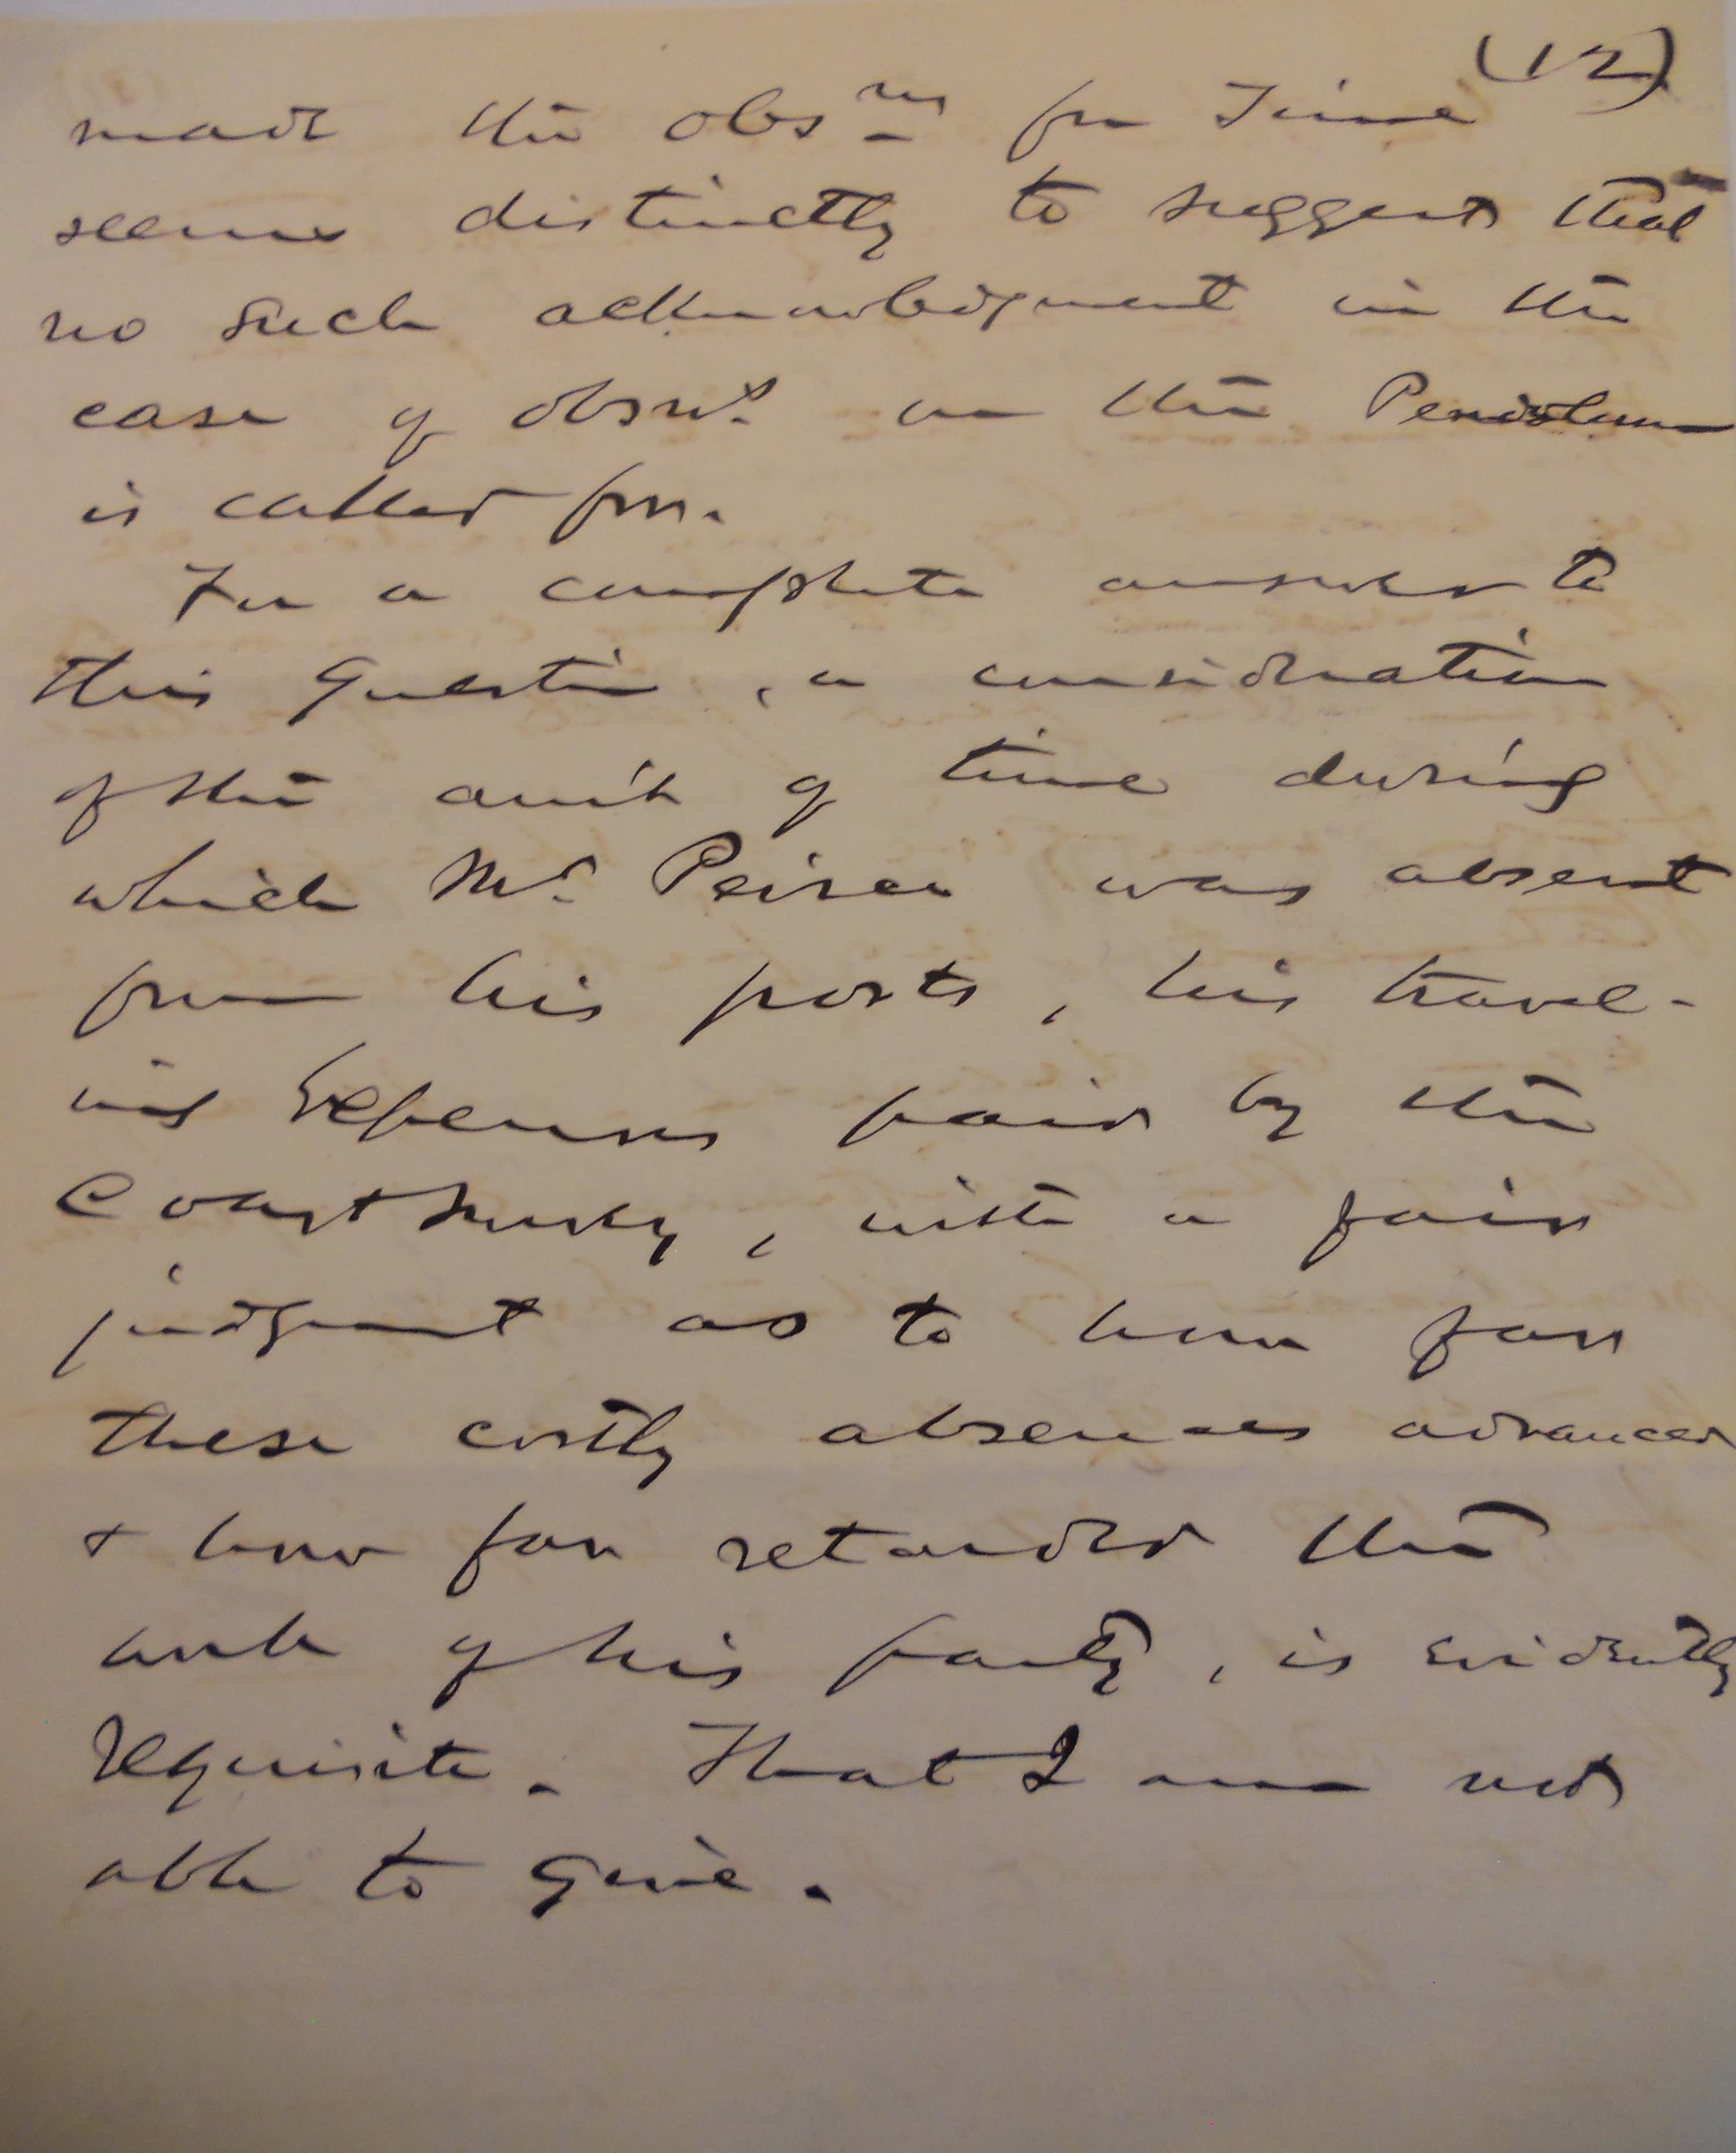 (12)
made the obsns for Time
seems distinctly to suggest that
no such acknowledgment in the
case of obsns. on the Pendulum
is called for.
For a complete answer to
this question, a consideration
of the am't of time during
which Mr. Peirce was absent
from his posts, his travel-
ing Expenses paid by the
Coast Survey, with a fair
judgment as to how far
these costly absences advanced
+ how far retarded the
work of his party, is evidently
requisite. That I am not
able to give.